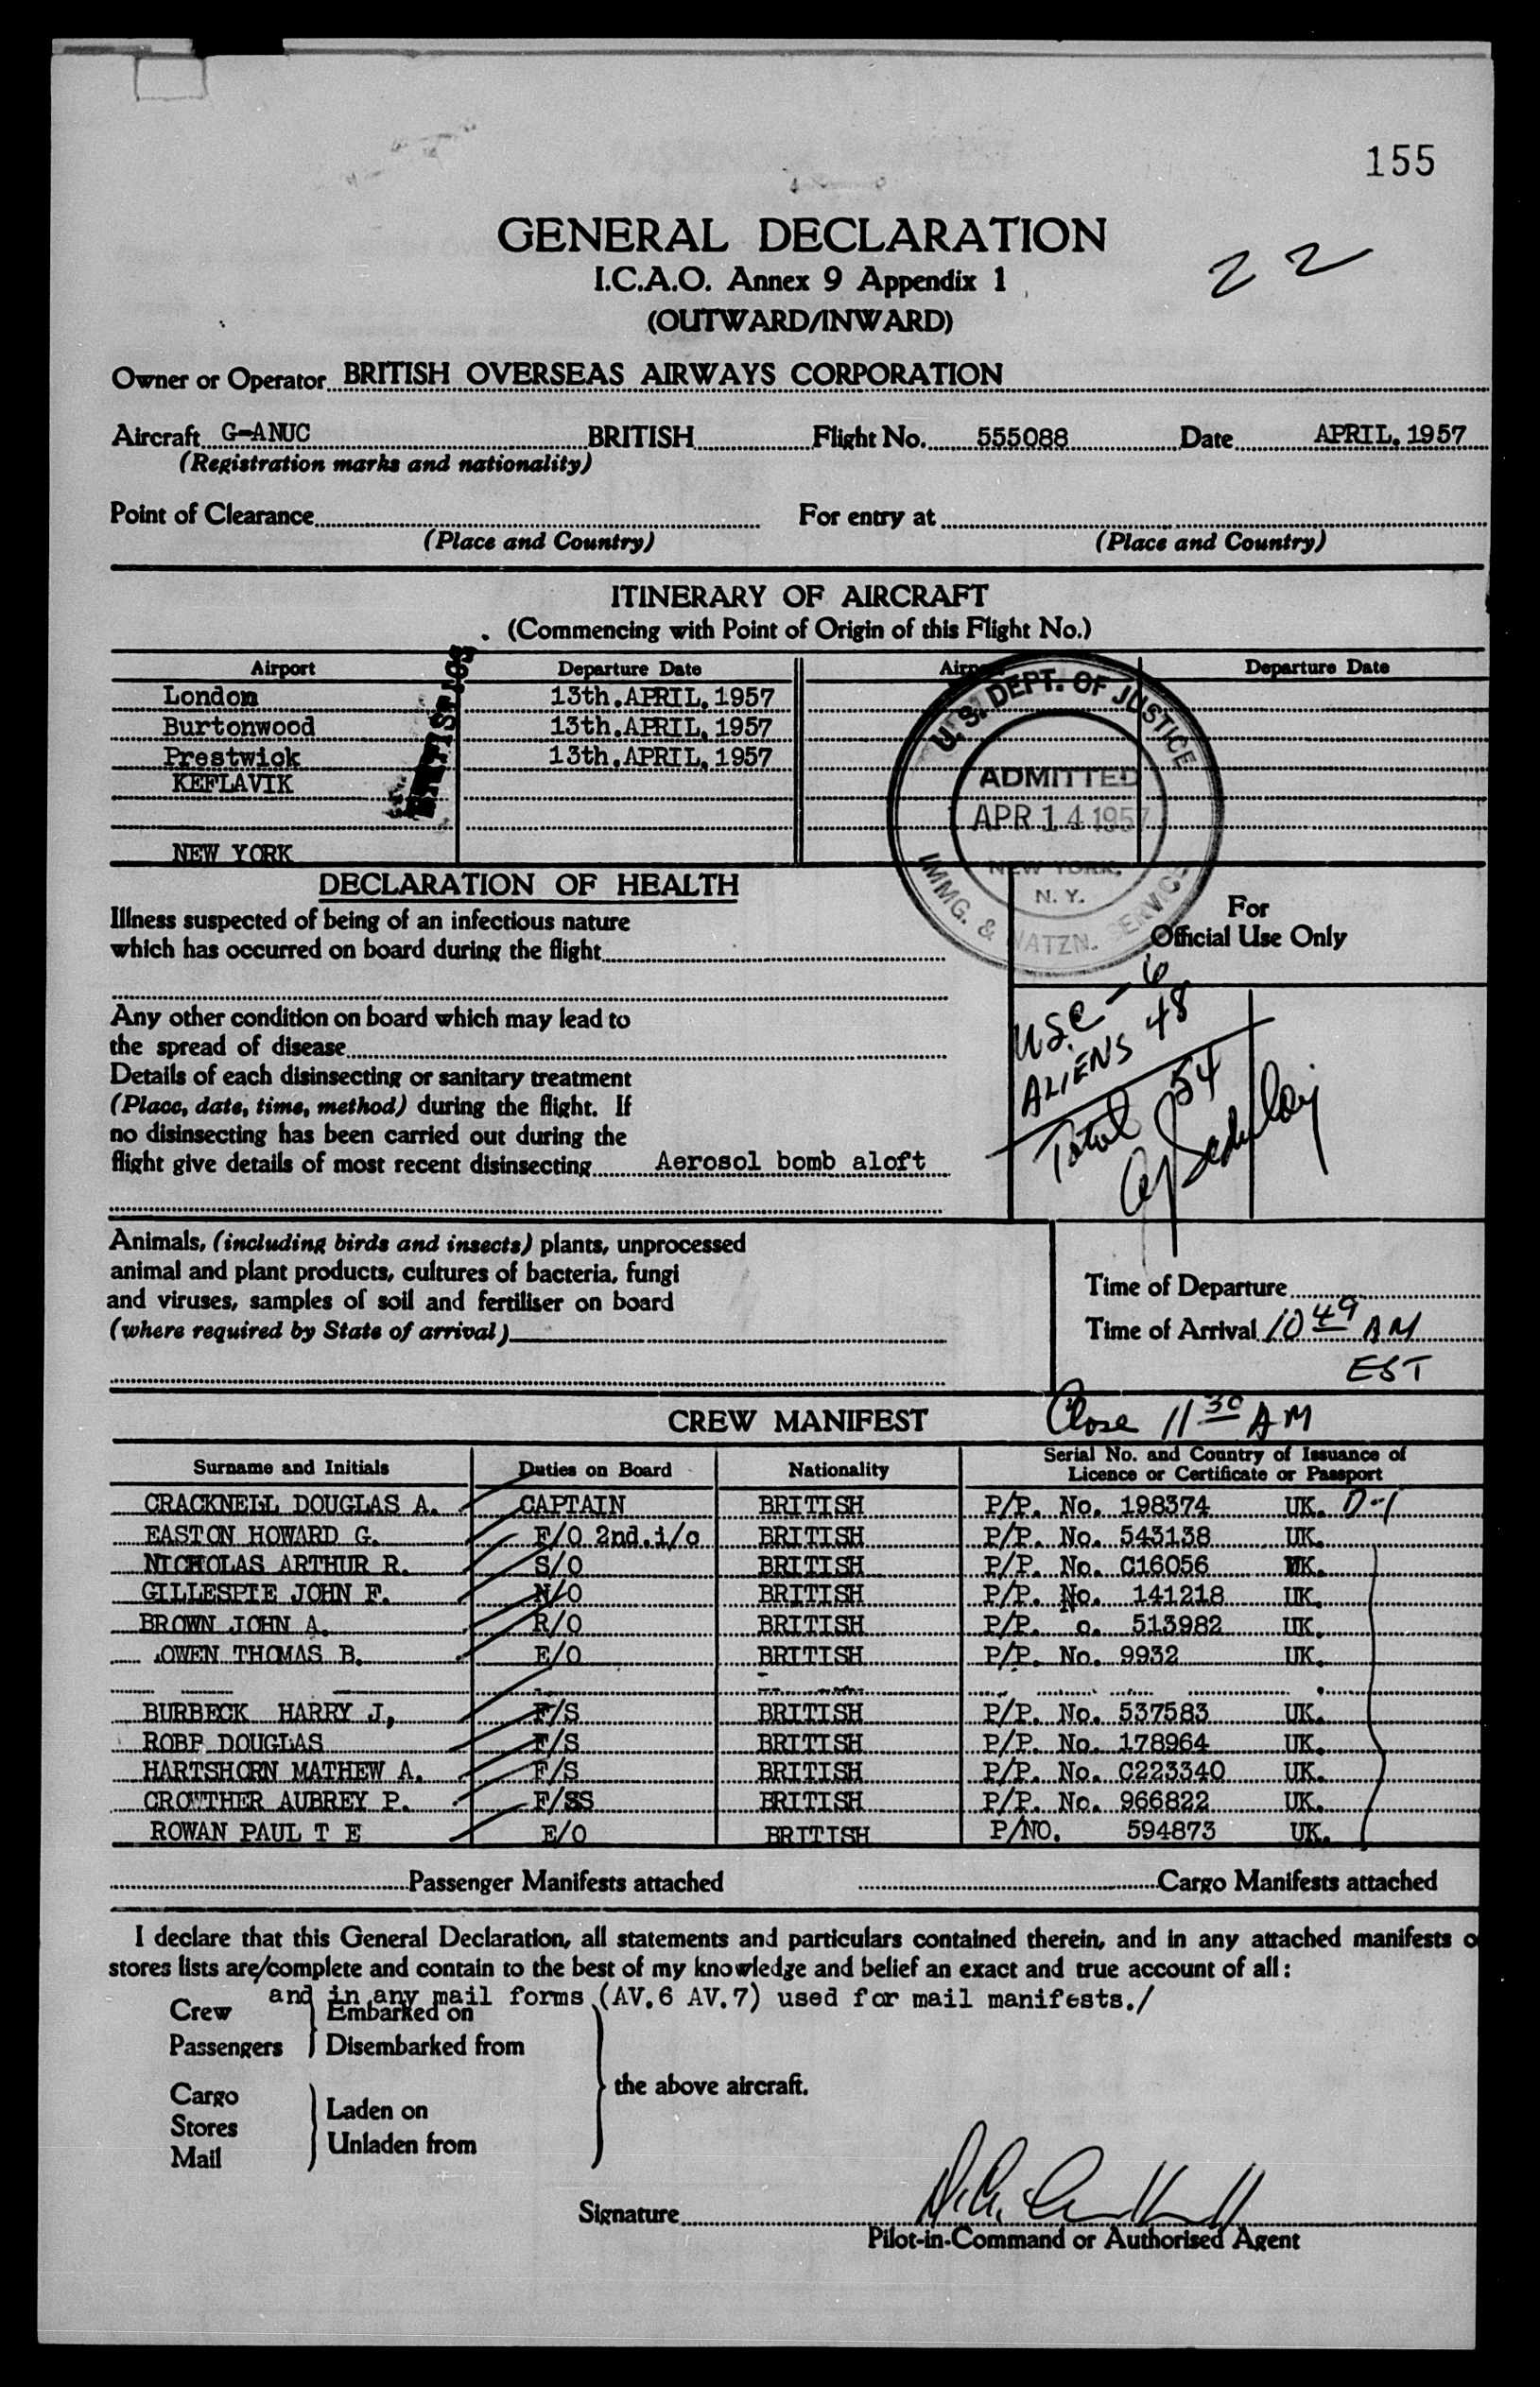 155
GENERAL DECLARATION
22
I.C.A.O. Annex 9 Appendix 1
(OUTWARD/INWARD)
Owner or Operator BRITISH OVERSEAS AIRWAYS CORPORATION
Aircraft G-ANUC BRITISH Flight No. 555088 Date APRIL. 1957
(Registration marks and nationality)
Point of Clearance For entry at
(Place and Country) (Place and Country)
ITINERARY OF AIRCRAFT
(Commencing with Point of Origin of this Flight No.)
Airport Departure Date Airport Departure Date
London 13th.APRIL. 1957
Burtonwood 13th.APRIL. 1957
Prestwick 13th.APRIL. 1957
KEFLAVIK
NEW YORK
U.S. DEPT. OF JUSTICE
ADMITTED
APR 14 1957
NEW YORK,
N. Y.
IMMG. & NATZN. SERVICE
DECLARATION OF HEALTH
Illness suspected of being of an infectious nature
which has occurred on board during the flight
For
Official Use Only
Any other condition on board which may lead to
the spread of disease
Details of each disinsecting or sanitary treatment
(Place, date, time, method) during the flight. If
no disinsecting has been carried out during the
flight give details of most recent disinsecting Aerosol bomb aloft
USC - 6
ALIENS 48
Total 54
Animals, (including birds and insects) plants, unprocessed
animal and plant products, cultures of bacteria, fungi
and viruses, samples of soil and fertiliser on board
(where required by State of arrival)
Time of Departure
Time of Arrival 10 49 AM
EST
CREW MANIFEST Close 11 30 AM
Surname and Initials Duties on Board Nationality Serial No. and Country of Issuance of
Licence or Certificate or Passport
CRACKNELL DOUGLAS A. CAPTAIN BRITISH P/P. No. 198374 UK. D-1
EASTON HOWARD G. F/O 2nd.i/c BRITISH P/P. No. 543138 UK.
NICHOLAS ARTHUR R. S/O BRITISH P/P. No. C16056 UK.
GILLESPIE JOHN F. N/O BRITISH P/P. No. 141218 UK.
BROWN JOHN A. R/O BRITISH P/P. o. 513982 UK.
OWEN THOMAS B. E/O BRITISH P/P. No. 9932 UK.
BURBECK HARRY J, F/S BRITISH P/P. No. 537583 UK.
ROBB DOUGLAS F/S BRITISH P/P. No. 178964 UK.
HARTSHORN MATHEW A. F/S BRITISH P/P. No. C223340 UK.
CROWTHER AUBREY P. F/SS BRITISH P/P. No. 966822 UK.
ROWAN PAUL T E E/O BRITISH P/NO. 594873 UK.
Passenger Manifests attached Cargo Manifests attached
I declare that this General Declaration, all statements and particulars contained therein, and in any attached manifests o
stores lists are/complete and contain to the best of my knowledge and belief an exact and true account of all:
and in any mail forms (AV.6 AV.7) used for mail manifests./
Crew Embarked on
Passengers Disembarked from
the above aircraft.
Cargo
Laden on
Stores
Unladen from
Mail
Signature D.A. Cracknell
Pilot-in-Command or Authorised Agent